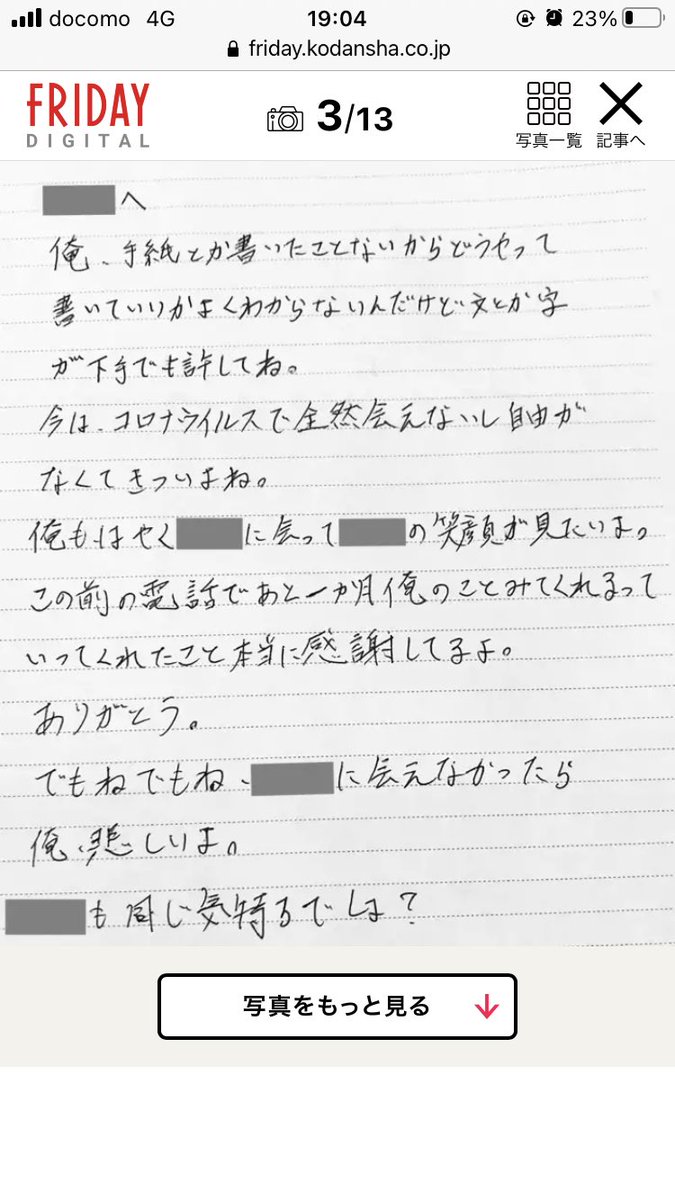 docomo 4G 19:04 23%
friday.kodansha.co.jp
FRIDAY
DIGITAL
3/13
写真一覧 記事へ
へ
俺、手紙とか書いたことないからどうやって
書いていいかよくわからないんだけど文とか字
が下手でも許してね。
今は、コロナウイルスで全然会えないし自由が
なくてきついよね。
俺もはやく に会って の笑顔が見たいよ。
この前の電話であと一か月俺のことみてくれるって
いってくれたこと本当に感謝してるよ。
ありがとう。
でもねでもね、 に会えなかったら
俺、悲しいよ。
も同じ気持ちでしょ?
写真をもっと見る